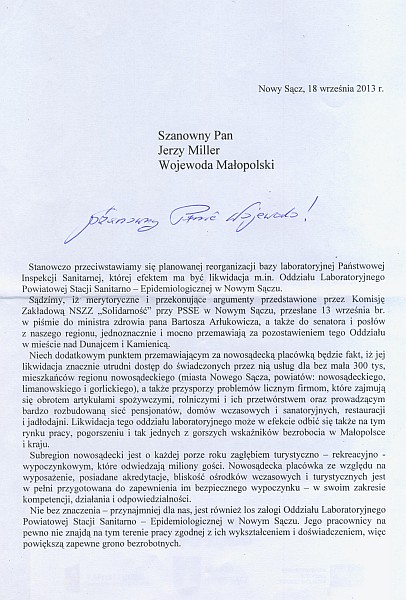 Nowy Sącz, 18 września 2013 r.
Szanowny Pan
Jerzy Miller
Wojewoda Małopolski
Szanowny Panie Wojewodo!
Stanowczo przeciwstawiamy się planowanej reorganizacji bazy laboratoryjnej Państwowej
Inspekcji Sanitarnej, której efektem ma być likwidacja m.in. Oddziału Laboratoryjnego
Powiatowej Stacji Sanitarno – Epidemiologicznej w Nowym Sączu.
Sądzimy, iż merytoryczne i przekonujące argumenty przedstawione przez Komisję
Zakładową NSZZ „Solidarność” przy PSSE w Nowym Sączu, przesłane 13 września br.
w piśmie do ministra zdrowia pana Bartosza Arłukowicza, a także do senatora i posłów
z naszego regionu, jednoznacznie i mocno przemawiają za pozostawieniem tego Oddziału
w mieście nad Dunajcem i Kamienicą.
Niech dodatkowym punktem przemawiającym za nowosądecką placówką będzie fakt, iż jej
likwidacja znacznie utrudni dostęp do świadczonych przez nią usług dla bez mała 300 tys,
mieszkańców regionu nowosądeckiego (miasta Nowego Sącza, powiatów: nowosądeckiego,
limanowskiego i gorlickiego), a także przysporzy problemów licznym firmom, które zajmują
się obrotem artykułami spożywczymi, rolniczymi i ich przetwórstwem oraz prowadzącym
bardzo rozbudowaną sieć pensjonatów, domów wczasowych i sanatoryjnych, restauracji
i jadłodajni. Likwidacja tego oddziału laboratoryjnego może w efekcie odbić się także na tym
rynku pracy, pogorszeniu i tak jednych z gorszych wskaźników bezrobocia w Małopolsce
i kraju.
Subregion nowosądecki jest o każdej porze roku zagłębiem turystyczno – rekreacyjno -
wypoczynkowym, które odwiedzają miliony gości. Nowosądecka placówka ze względu na
wyposażenie, posiadane akredytacje, bliskość ośrodków wczasowych i turystycznych jest
w pełni przygotowana do zapewnienia im bezpiecznego wypoczynku – w swoim zakresie
kompetencji, działania i odpowiedzialności.
Nie bez znaczenia – przynajmniej dla nas, jest również los załogi Oddziału Laboratoryjnego
Powiatowej Stacji Sanitarno – Epidemiologicznej w Nowym Sączu. Jego pracownicy na
pewno nie znajdą na tym terenie pracy zgodnej z ich wykształceniem i doświadczeniem, więc
powiększą zapewne grono bezrobotnych.